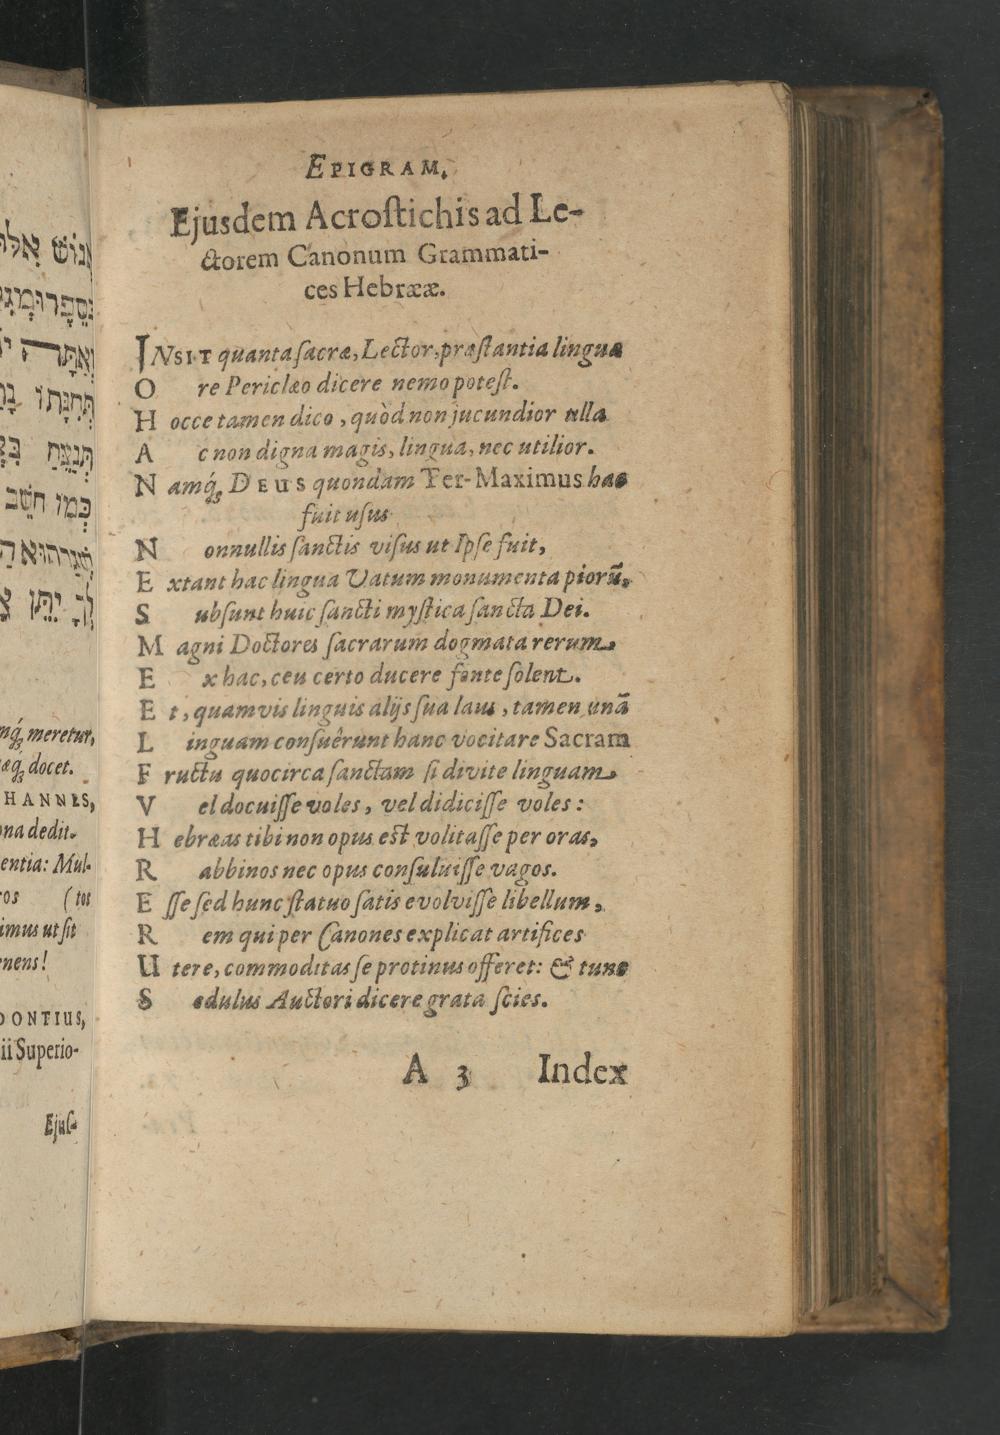 EPIGRAM.
Ejusdem Acroſtichis ad Le-
ctorem Canonum Grammati-
ces Hebrææ.
INSIT quanta ſacræ, Lector, præſtantia linguæ
O re Periclæo dicere nemo poteſt.
H occe tamen dico, quòd non jucundior ulla
A c non digna magis, lingua, nec utilior.
N amq́ꝫ DEUS quondam Ter-Maximus hac
fuit uſus
N onnullis ſanctis viſus ut Ipſe fuit,
E xtant hac lingua Vatum monumenta piorũ,
S ubſunt huic ſancti myſtica ſancta Dei.
M agni Doctores ſacrarum dogmata rerum
E x hac, ceu certo ducere fonte ſolent.
E t, quamvis linguis alijs ſua laus, tamen unã
L inguam conſuêrunt hanc vocitare Sacram
F ructu quocirca ſanctam ſi divite linguam
V el docuiſſe voles, vel didiciſſe voles:
H ebræas tibi non opus eſt volitaſſe per oras,
R abbinos nec opus conſuluiſſe vagos.
E ſſe ſed hunc ſtatuo ſatis evolviſſe libellum,
R em qui per Canones explicat artifices
U tere, commoditas ſe protinus offeret: & tunc
S edulus Auctori dicere grata ſcies.
A 3 Index
meretur,
docet.
HANNES,
dedit.
entia: Mul-
(tos
imus ut ſit
nens!
DONTIUS,
ii Superio-
Ejuſ-